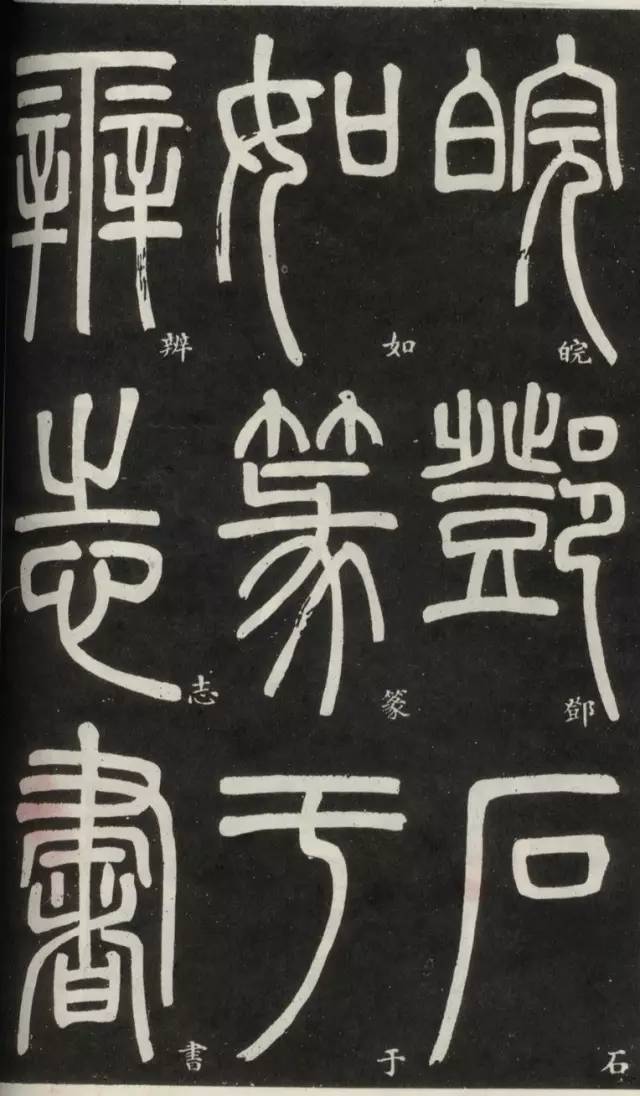 皖鄧石
如篆于
辨志書